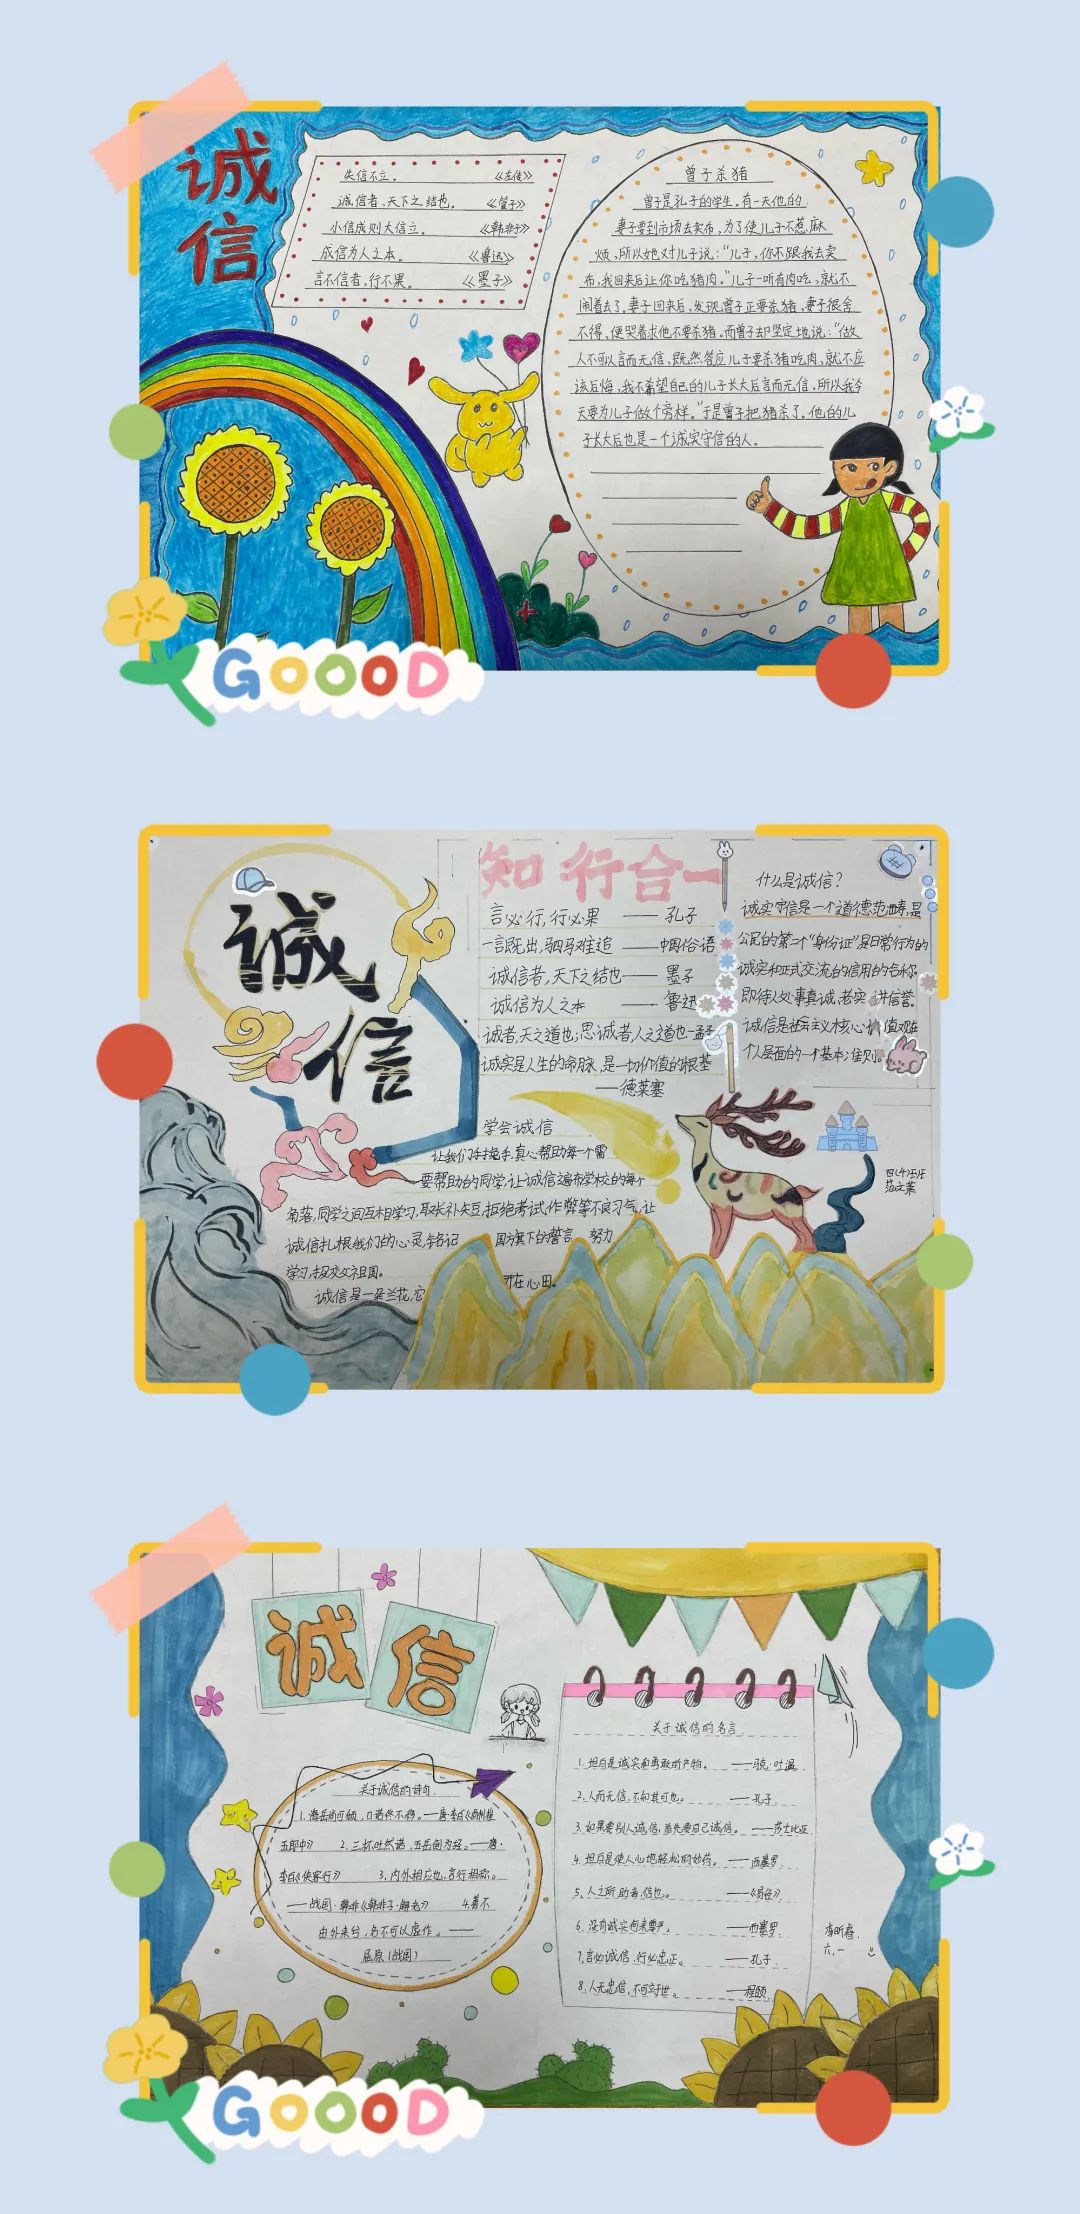 诚
信
失信不立。 《左传》
诚信者,天下之结也。 《管子》
小信成则大信立。 《韩非子》
成信为人之本。 《鲁迅》
言不信者,行不果。 《墨子》
曾子杀猪
曾子是孔子的学生。有一天他的
妻子要到市场去卖布,为了使儿子不惹麻
烦,所以她对儿子说:“儿子,你不跟我去卖
布,我回来后让你吃猪肉。”儿子一听有肉吃,就不
闹着去了。妻子回来后,发现曾子正要杀猪,妻子很舍
不得,便哭着求他不要杀猪。而曾子却坚定地说:“做
人不可以言而无信,既然答应儿子要杀猪吃肉,就不应
该后悔,我不希望自己的儿子长大后言而无信,所以我今
天要为儿子做个榜样。”于是曾子把猪杀了。他的儿
子长大后也是一个诚实守信的人。
GOOOD
诚
信
知行合一
言必行,行必果 —— 孔子
一言既出,驷马难追 ——中国俗语
诚信者,天下之结也 —— 墨子
诚信为人之本 —— 鲁迅
诚者,天之道也;思诚者,人之道也—孟子
诚实是人生的命脉,是一切价值的根基
——德莱塞
什么是诚信?
诚实守信是一个道德范畴,是
公民的第二个“身份证”是日常行为的
诚实和正式交流的信用的名称
即待人处事真诚、老实、讲信誉。
诚信是社会主义核心价值观在
个人层面的一个基本准则。
学会诚信
让我们手挽手,真心帮助每一个需
要帮助的同学,让诚信遍布学校的每个
角落,同学之间互相学习,取长补短,拒绝考试作弊等不良习气,让
诚信扎根我们的心灵,铭记 国旗下的誓言 努力
学习,报效祖国。
诚信是一朵兰花,它 在心田。
四(4)班
范文
诚信
关于诚信的诗句
1.海岳尚可倾,口诺终不移。——唐·李白《酬崔
五郎中》 2.三杯吐然诺,五岳倒为轻。——唐·
李白《侠客行》 3.内外相应也,言行相称。
——战国·韩非《韩非子·解老》 4.善不
由外来兮,名不可以虚作。——
屈原(战国)
关于诚信的名言
1.坦白是诚实和勇敢的产物。 ——马克·吐温
2.人而无信,不知其可也。 ——孔子
3.如果要别人诚信,首先要自己诚信。 ——莎士比亚
4.坦白是使人心地轻松的妙药。 ——西塞罗
5.人之所助者,信也。 ——《易经》
6.没有诚实何来尊严。 ——西塞罗
7.言必诚信,行必忠正。 ——孔子
8.人无忠信,不可立于世。 ——程颐
六、一
GOOOD